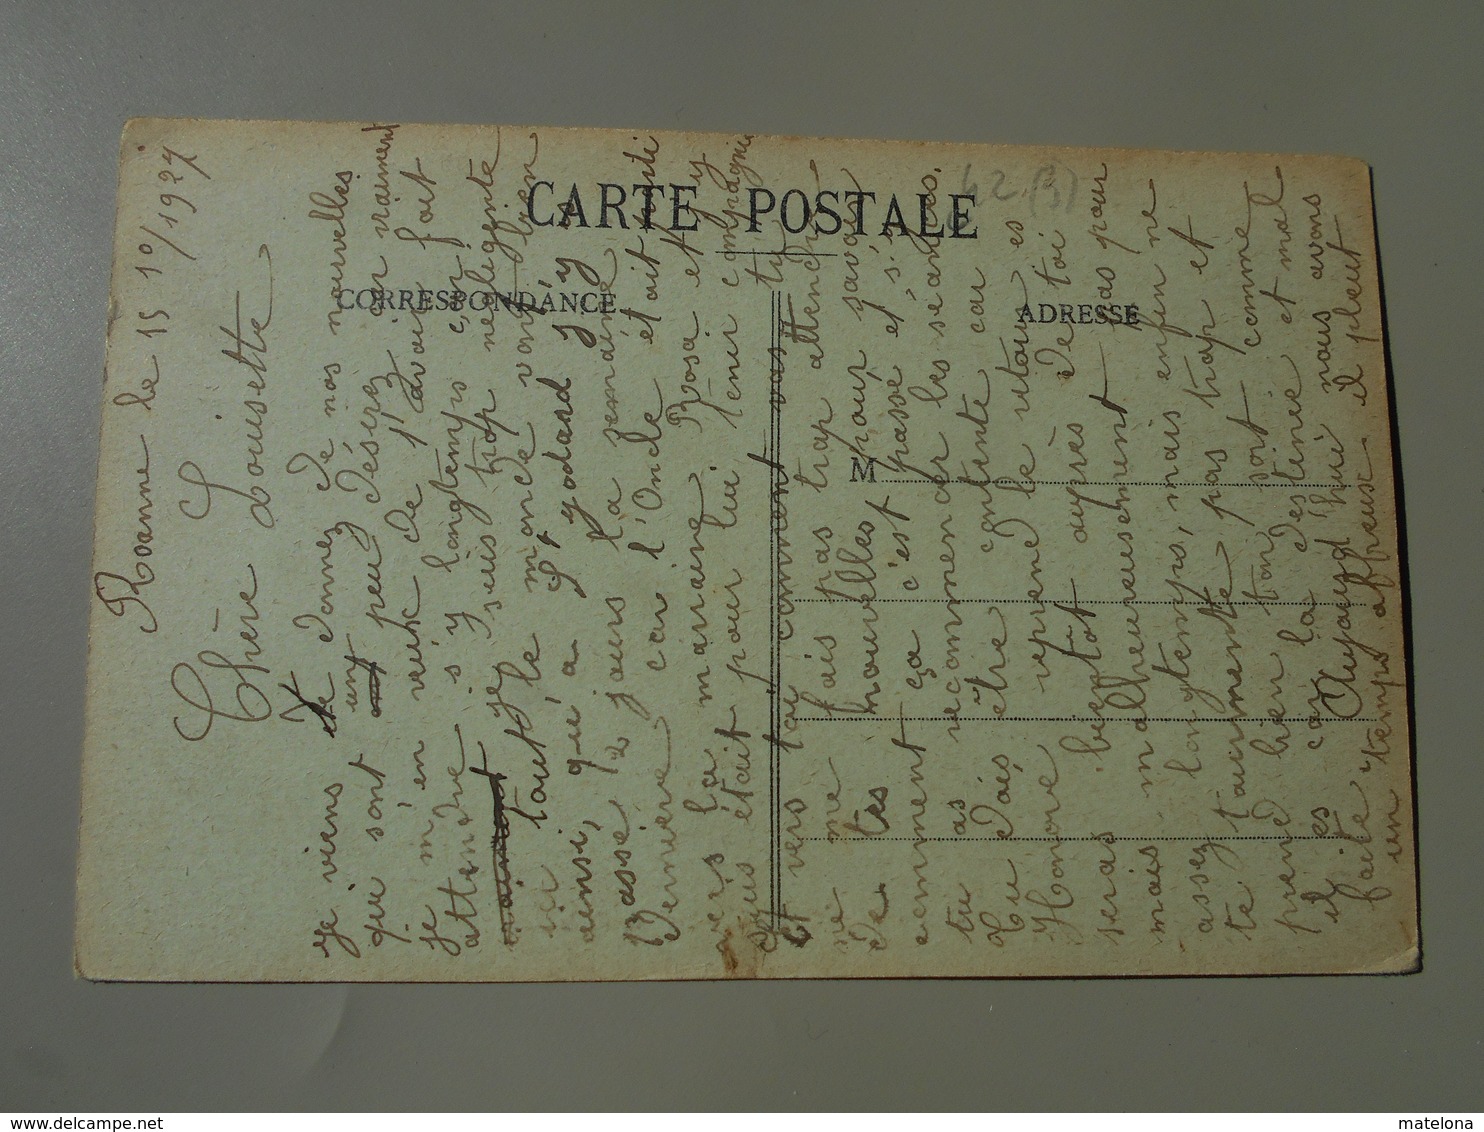 CARTE POSTALE
CORRESPONDANCE
ADRESSE
M
42 (3)
Roanne le 15 10/1927
Chère Louisette
je viens te donnez de nos nouvelles
qui sont un peu désirez car vraiment
je m'en veux de l'avoir fait
attendre s'y longtemps, j'en
suis trop negligente
tout le monde vont bien
ici
ainsi, qu'a St yodard j'y
passé 12 jours la semdine
derniere car l'Oncle était parti
vers la marraine Rosa et j'y
suis était pour lui tenir compagnie
Et vers toi comment vas tu
ne me fais pas trop attendre
de tes nouvelles pour savoir
comment ça c'est passé et s'y
tu as recommencer les séances.
Tu dois être contente car
Honoré reprend le retour es
seras bientot auprès de toi
mais malheureusement pas pour
assez longtemps, mais enfin ne
te tourmente pas trop et
prend bien ton sort comme
il es car la destinie et mal
faite. Aujourd'hui nous avons
un temps affreux il pleut
delcampe.net
matelona